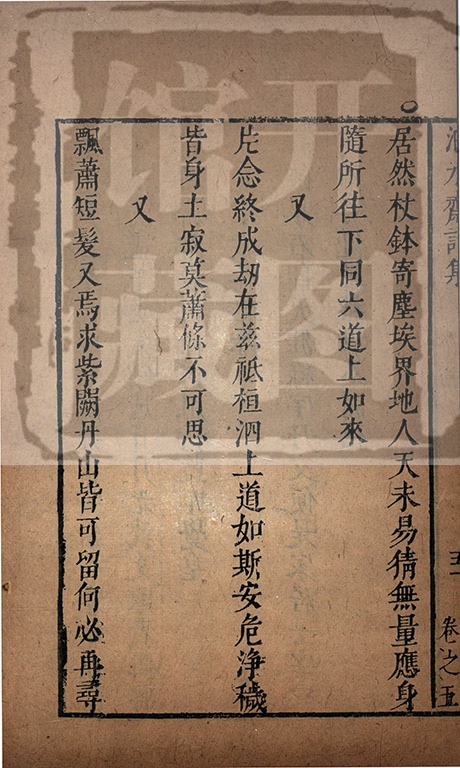 居然杖鉢寄塵埃界地人天未易猜無量應身
隨所往下同六道上如來
又
片念終成劫在茲祗桓泗上道如斯安危浄穢
皆身土寂莫蕭條不可思
又
飄蕭短髮又焉求紫闕丹山皆可留何必再尋
卷之五